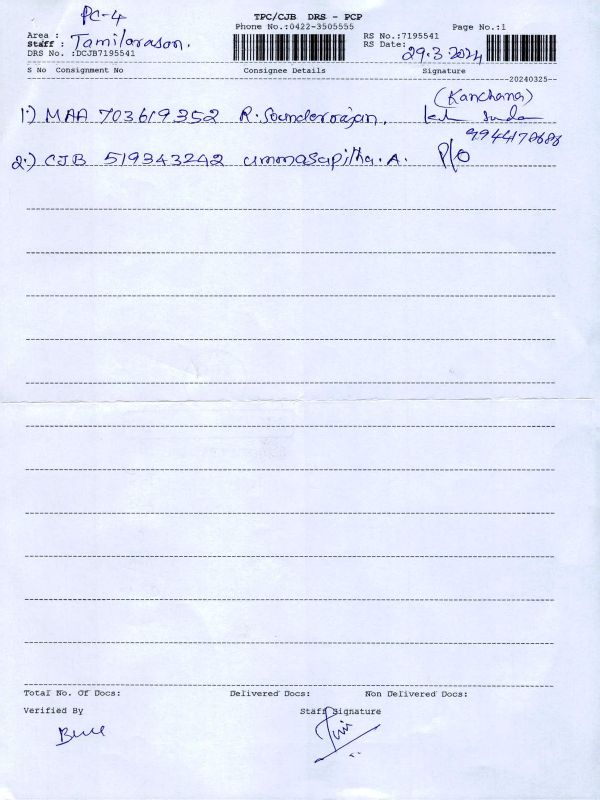 PC-4
TPC/CJB DRS - PCP
Phone No.:0422-3505555
Page No.:1
Area :
RS No.:7195541
Staff : Tamilarasan.
RS Date: 29.3.2024
DRS No. :DCJB7195541
S No Consignment No Consignee Details Signature
20240325
(Kanchana)
1.) MAA 703619352 R. Soundararajan.
9944178686
2.) CJB 519343242 ummasapitha. A. P/O
Total No. Of Docs: Delivered Docs: Non Delivered Docs:
Verified By Staff Signature